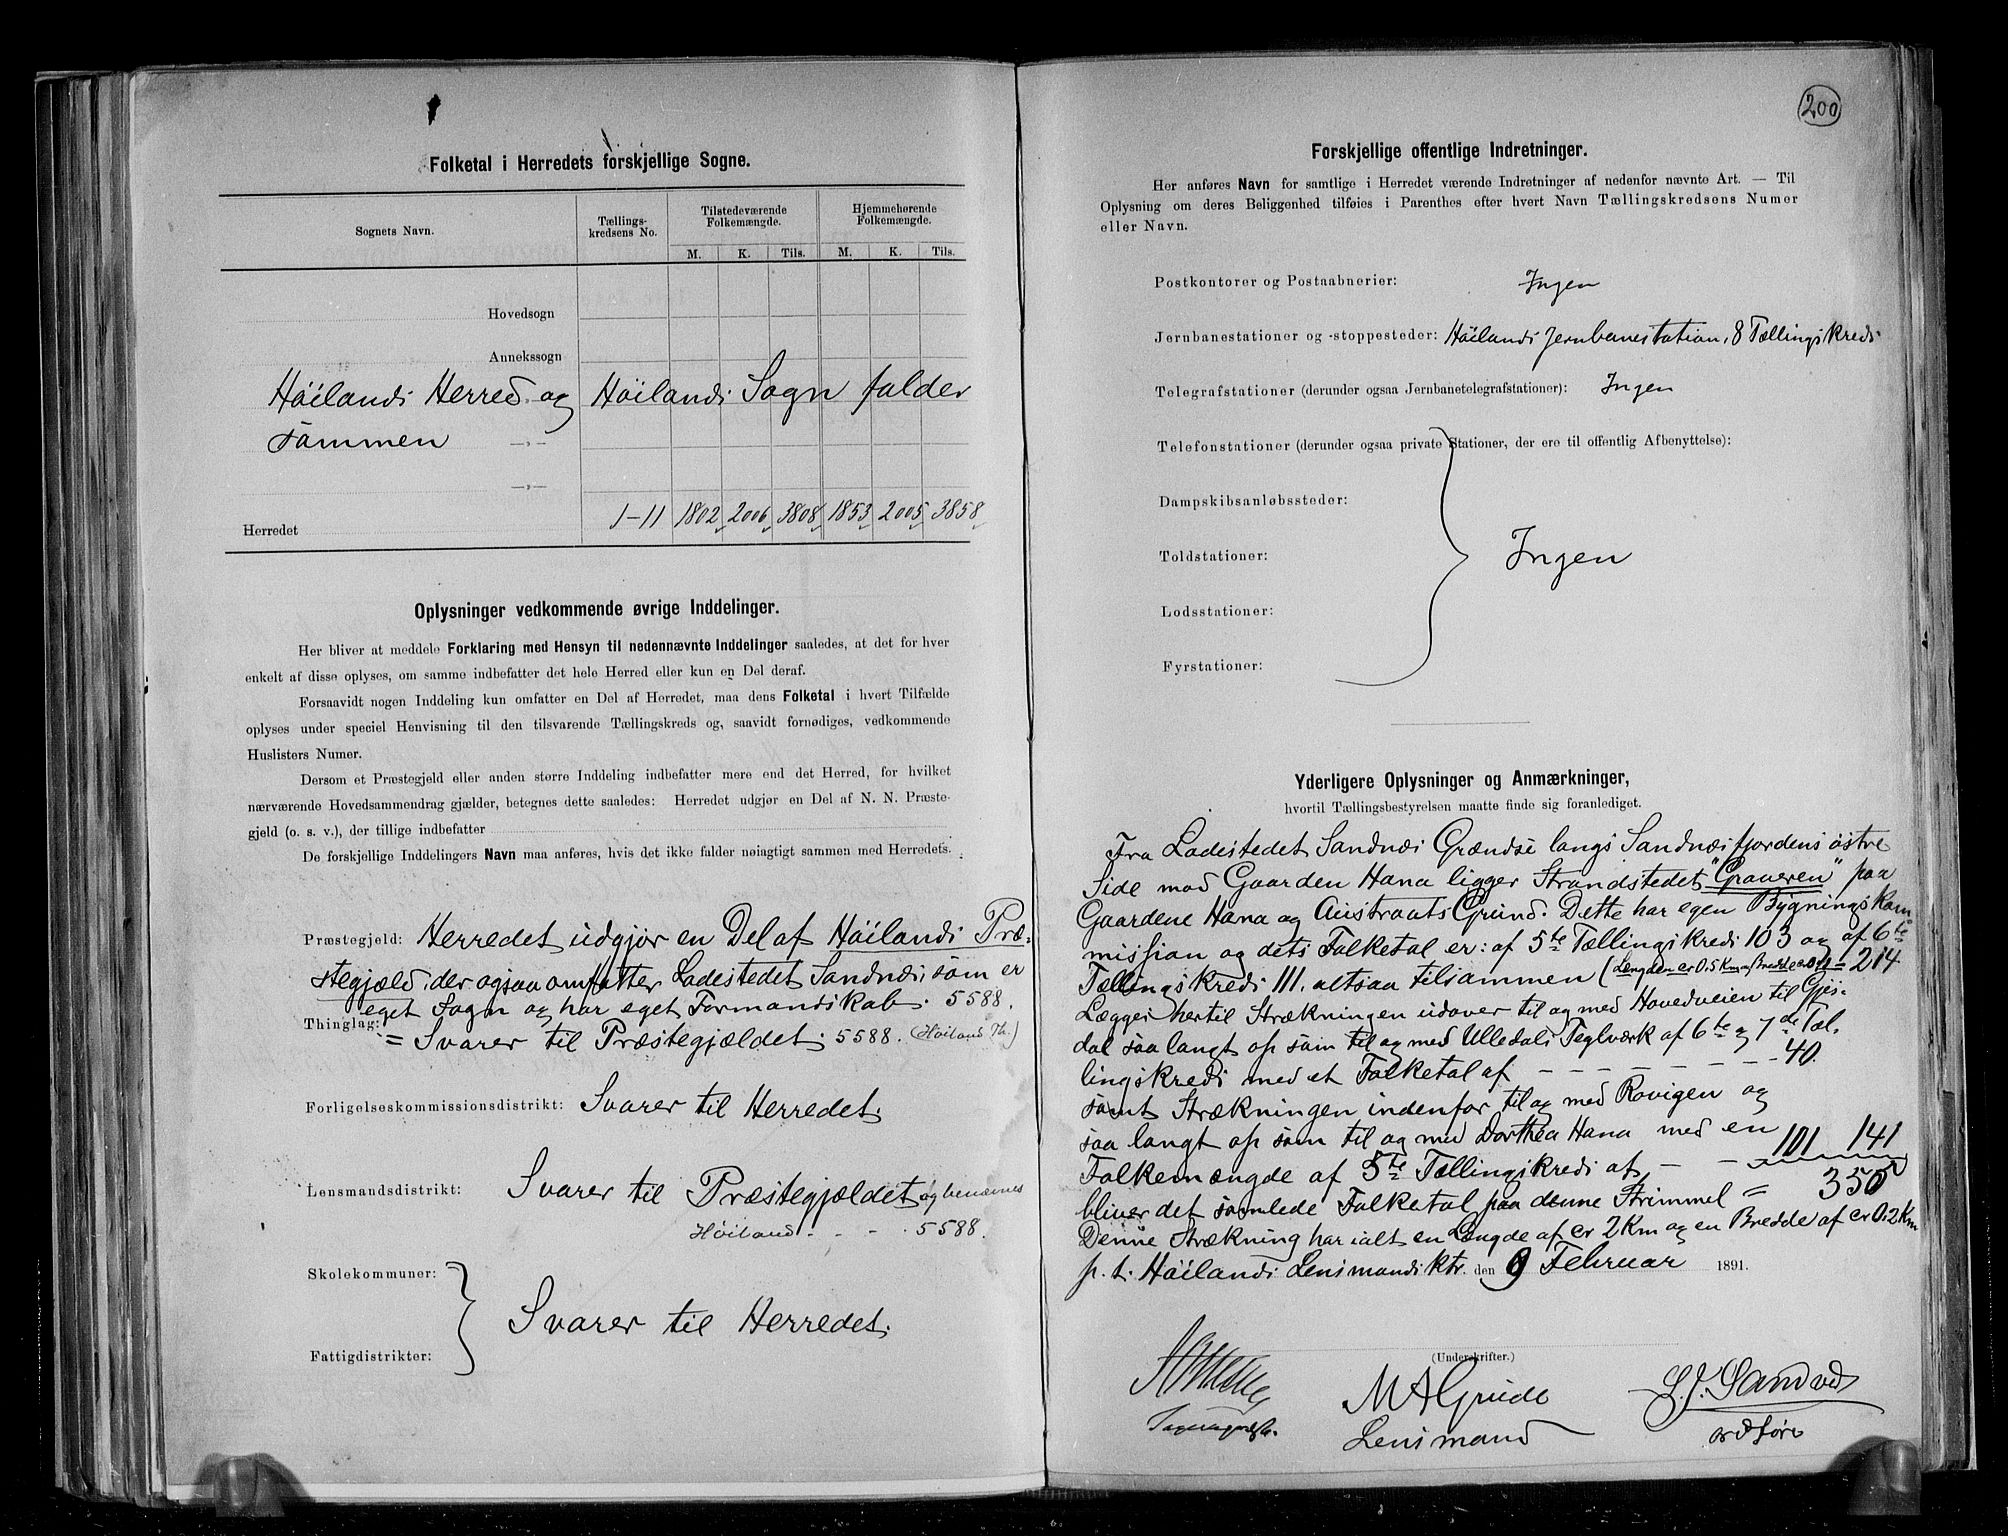 Folketal i Herredets forskjellige Sogne.
Sognets Navn.
Tællings-
kredsens No.
Tilstedeværende
Folkemængde.
Hjemmehørende
Folkemængde.
M. K. Tils. M. K. Tils.
Hovedsogn
Annekssogn
Höilands Herred og Höilands Sogn falder
sammen —„—
—„—
Herredet 1-11 1802 2006 3808 1853 2005 3858
Oplysninger vedkommende øvrige Inddelinger.
Her bliver at meddele Forklaring med Hensyn til nedennævnte Inddelinger saaledes, at det for hver
enkelt af disse oplyses, om samme indbefatter det hele Herred eller kun en Del deraf.
Forsaavidt nogen Inddeling kun omfatter en Del af Herredet, maa dens Folketal i hvert Tilfælde
oplyses under speciel Henvisning til den tilsvarende Tællingskreds og, saavidt fornødiges, vedkommende
Huslisters Numer.
Dersom et Præstegjeld eller anden større Inddeling indbefatter mere end det Herred, for hvilket
nærværende Hovedsammendrag gjælder, betegnes dette saaledes: Herredet udgjør en Del af N. N. Præste-
gjeld (o. s. v.), der tillige indbefatter
De forskjellige Inddelingers Navn maa anføres, hvis det ikke falder nøiagtigt sammen med Herredets.
Præstegjeld: Herredet udgjør en Del af Höilands Præ-
stegjæld, der ogsaa omfatter Ladestedet Sandnæs som er
eget Sogn og har eget Formandskab. 5588.
Thinglag: = Svarer til Præstegjældet. 5588. (Höiland Th.)
Forligelseskommissionsdistrikt: Svarer til Herredet.
Lensmandsdistrikt: Svarer til Præstegjældet og benævnes
Höiland - - - 5588.
Skolekommuner:
Svarer til Herredet.
Fattigdistrikter:
200
Forskjellige offentlige Indretninger.
Her anføres Navn for samtlige i Herredet værende Indretninger af nedenfor nævnte Art. — Til
Oplysning om deres Beliggenhed tilføies i Parenthes efter hvert Navn Tællingskredsens Numer
eller Navn.
Postkontorer og Postaabnerier: Ingen
Jernbanestationer og -stoppesteder: Höilands Jernbanestation, 8 Tællingskreds
Telegrafstationer (derunder ogsaa Jernbanetelegrafstationer): Ingen
Telefonstationer (derunder ogsaa private Stationer, der ere til offentlig Afbenyttelse):
Dampskibsanløbssteder:
Toldstationer: Ingen
Lodsstationer:
Fyrstationer:
Yderligere Oplysninger og Anmærkninger,
hvortil Tællingsbestyrelsen maatte finde sig foranlediget.
Fra Ladestedet Sandnæs Grændse langs Sandnæsfjordens östre
Side mod Gaarden Hana ligger Strandstedet "Graveren" paa
Gaardene Hana og Austraats Grund. Dette har egen Bygningskom-
mission og dets Folketal er: af 5te Tællingskreds 103 og af 6te
Tællingskreds 111, altsaa tilsammen (Længden er 0,5 Km Bredde = 214
Lægges hertil Strækningen udover til og med Hovedveien til Gjes-
dal saa langt op som til og med Ulledals Teglværk af 6te og 7de Tæl-
lingskreds med et Folketal af - - - - - - - 40.
samt Strækningen indenfor til og med Rovigen og
saa langt op som til og med Dorthea Hana med en
Folkemængde af 5te Tællingskreds af - - 101 141
bliver det samlede Folketal paa denne Strimmel = 355
Denne Strækning har ialt en Længde af cr 2 Km og en Bredde af cr 0,2 Km
p. t. Höilands Lensmandsktr. den 9 Februar 1891.
(Underskrifter.)
M A Grude
Lensmand
S. J. Sandved
ordfører